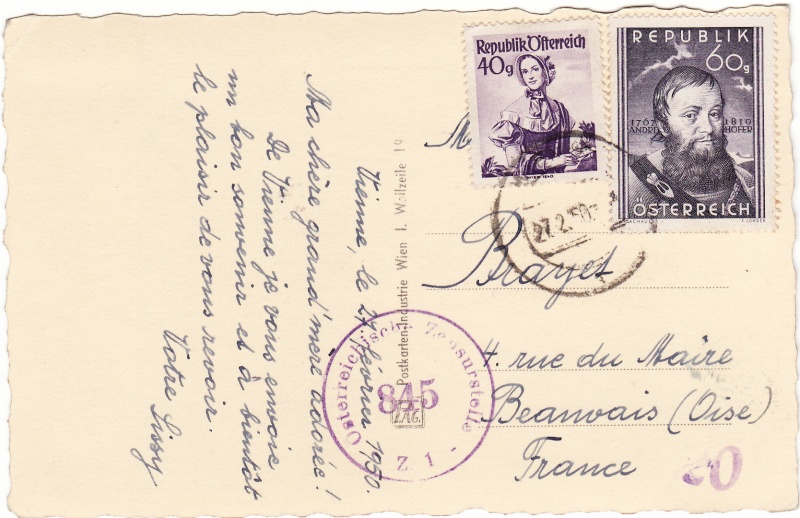 Vienne, le 27 février 1950.
Ma chère grand'mère adorée!
De Vienne je vous envoie
un bon souvenir et à bientôt
le plaisir de vous revoir.
Votre Lissy
Postkarten-Industrie Wien I. Wollzeile 19
P.A.G.
Österreichische Zensurstelle
845
Z. 1 -
Republik Österreich
40g
WIEN 1840
REPUBLIK
60g
1767 1810
ANDRÄ HOFER
ÖSTERREICH
27.2.50
M
Brayet
4. rue du Maire
Beauvais (Oise)
France
20